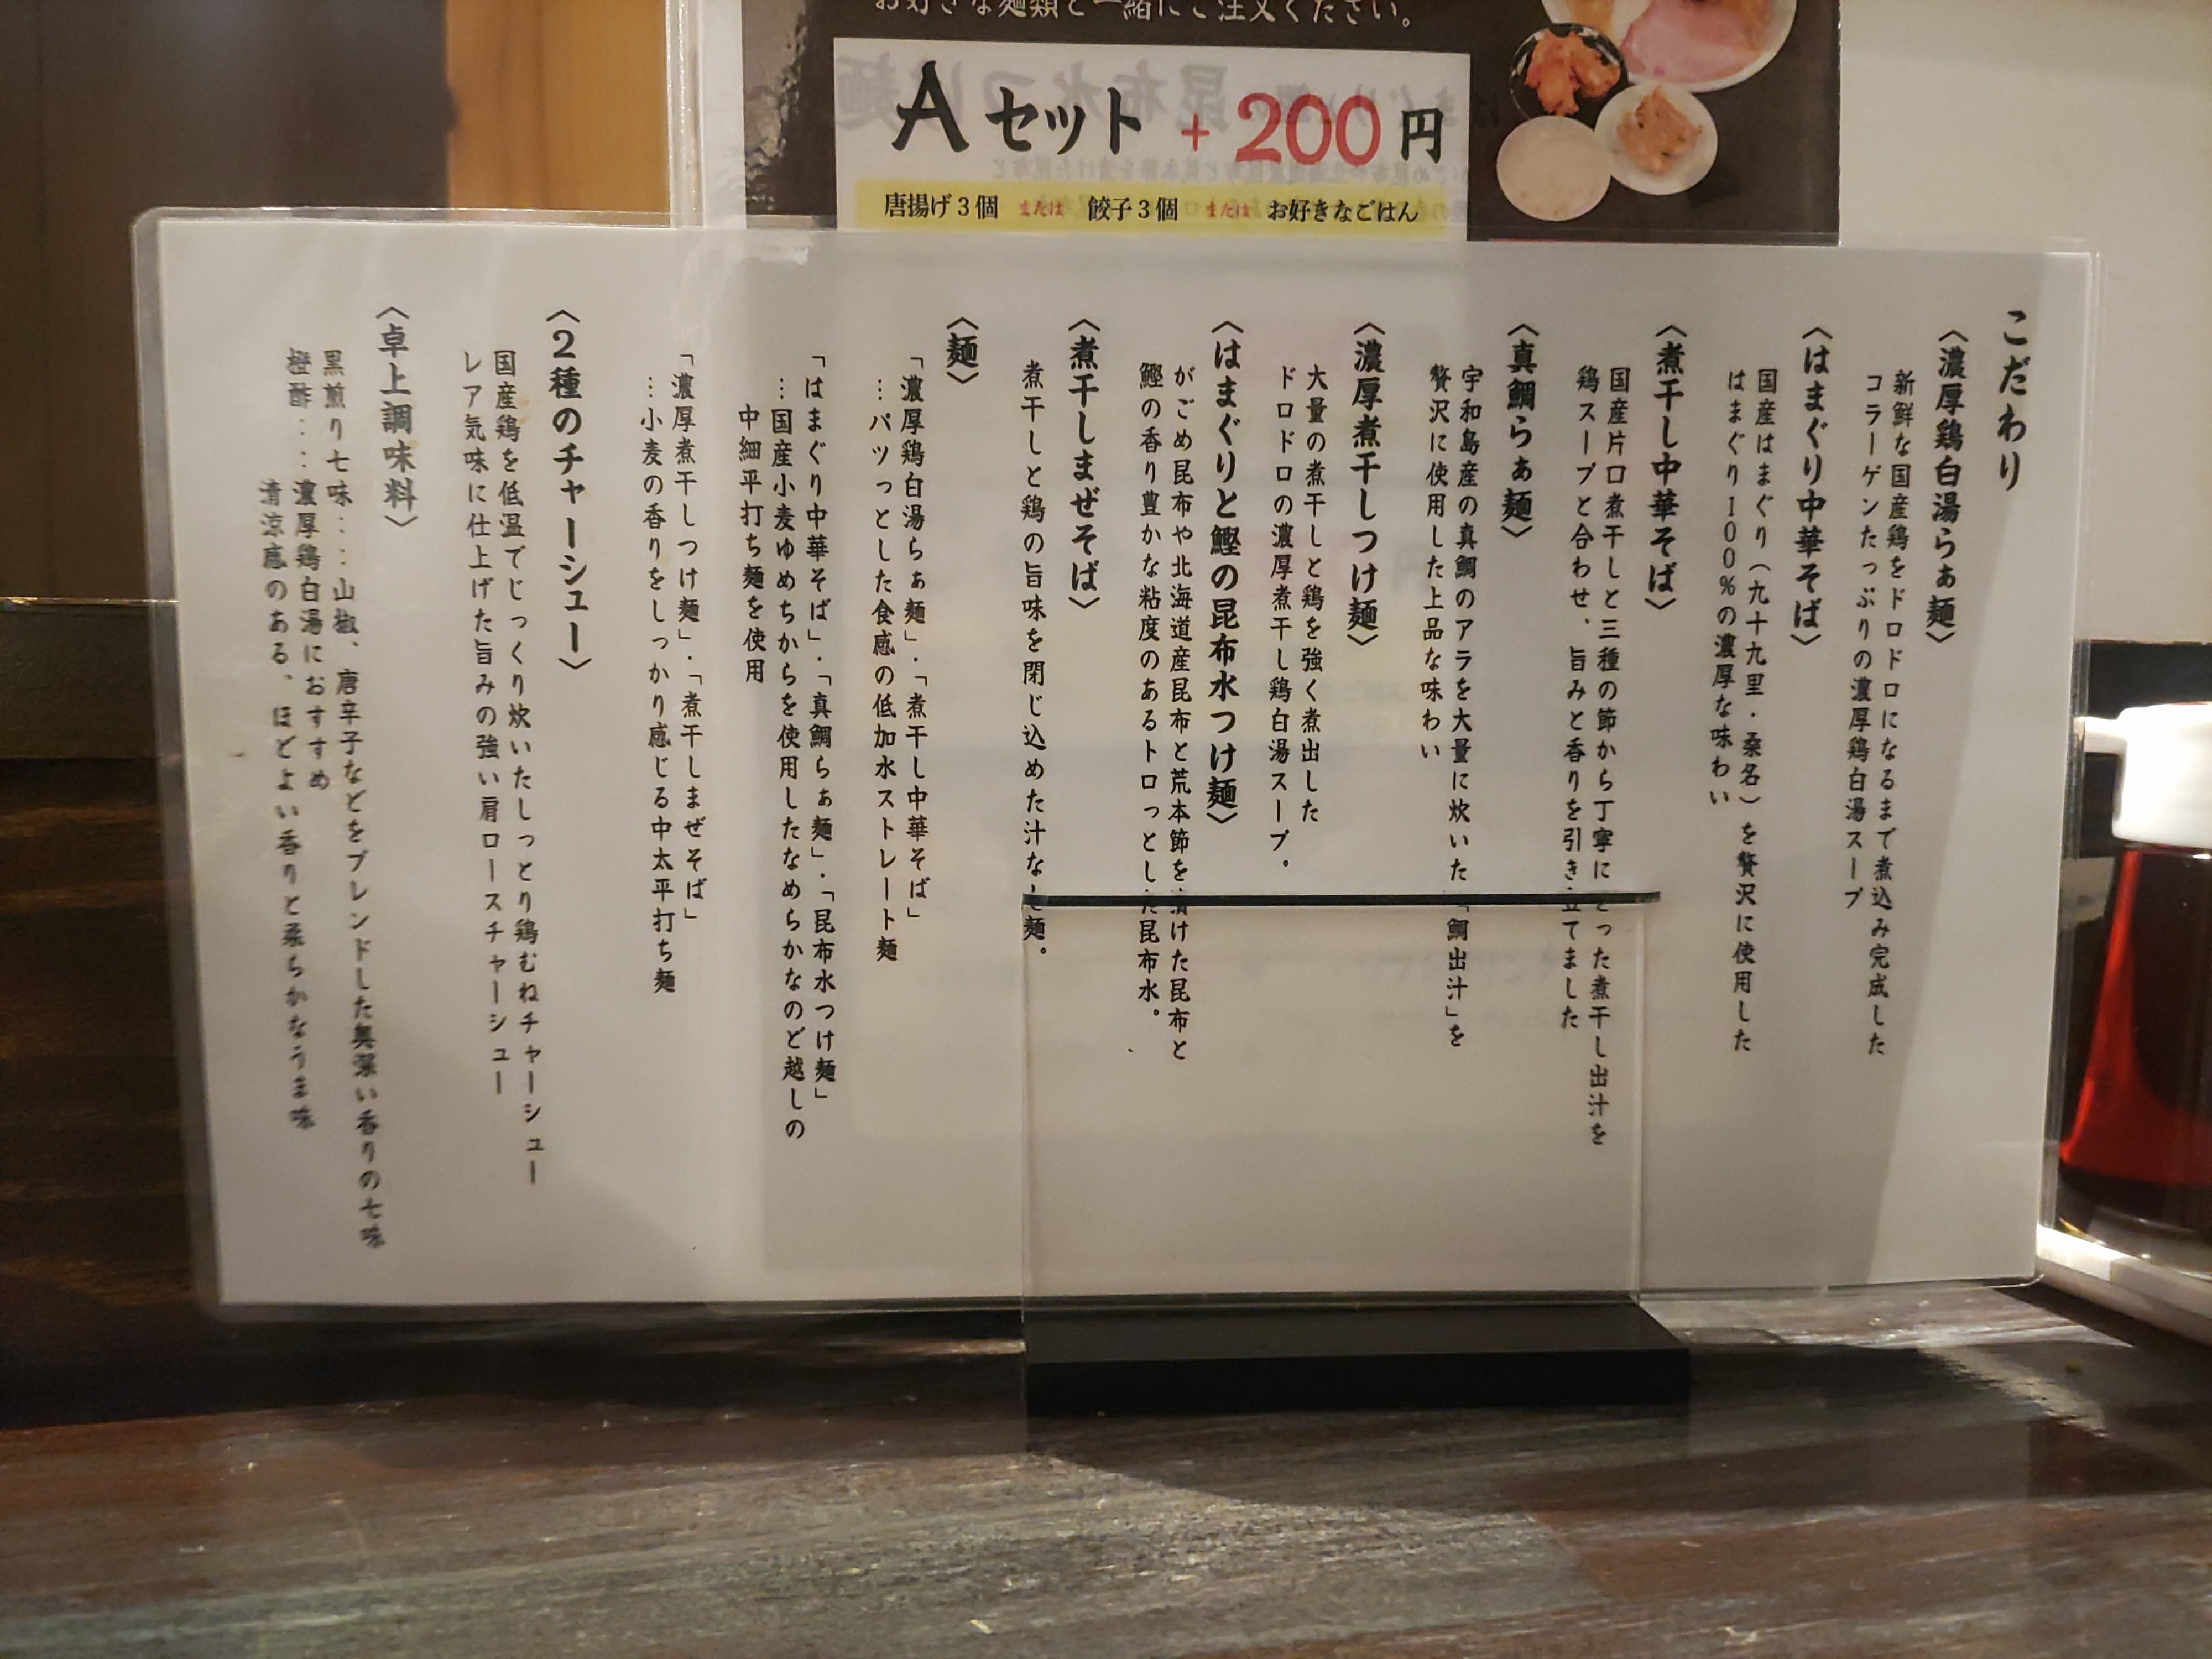 お好きな麺類と一緒にご注文ください。
Aセット + 200円
唐揚げ3個 または 餃子3個 または お好きなごはん
こだわり
〈濃厚鶏白湯らぁ麺〉
新鮮な国産鶏をドロドロになるまで煮込み完成した
コラーゲンたっぷりの濃厚鶏白湯スープ
〈はまぐり中華そば〉
国産はまぐり（九十九里・桑名）を贅沢に使用した
はまぐり100%の濃厚な味わい
〈煮干し中華そば〉
国産片口煮干しと三種の節から丁寧にとった煮干し出汁を
鶏スープと合わせ、旨みと香りを引き立てました
〈真鯛らぁ麺〉
宇和島産の真鯛のアラを大量に炊いた「鯛出汁」を
贅沢に使用した上品な味わい
〈濃厚煮干しつけ麺〉
大量の煮干しと鶏を強く煮出した
ドロドロの濃厚煮干し鶏白湯スープ。
〈はまぐりと鰹の昆布水つけ麺〉
がごめ昆布や北海道産昆布と荒本節を漬けた昆布と
鰹の香り豊かな粘度のあるトロっとした昆布水。
〈煮干しまぜそば〉
煮干しと鶏の旨味を閉じ込めた汁なし麺。
〈麺〉
「濃厚鶏白湯らぁ麺」・「煮干し中華そば」
…パツっとした食感の低加水ストレート麺
「はまぐり中華そば」・「真鯛らぁ麺」・「昆布水つけ麺」
…国産小麦ゆめちからを使用したなめらかなのど越しの
中細平打ち麺を使用
「濃厚煮干しつけ麺」・「煮干しまぜそば」
…小麦の香りをしっかり感じる中太平打ち麺
〈2種のチャーシュー〉
国産鶏を低温でじっくり炊いたしっとり鶏むねチャーシュー
レア気味に仕上げた旨みの強い肩ロースチャーシュー
〈卓上調味料〉
黒煎り七味……山椒、唐辛子などをブレンドした奥深い香りの七味
橙酢……濃厚鶏白湯におすすめ
清涼感のある、ほどよい香りと柔らかなうま味